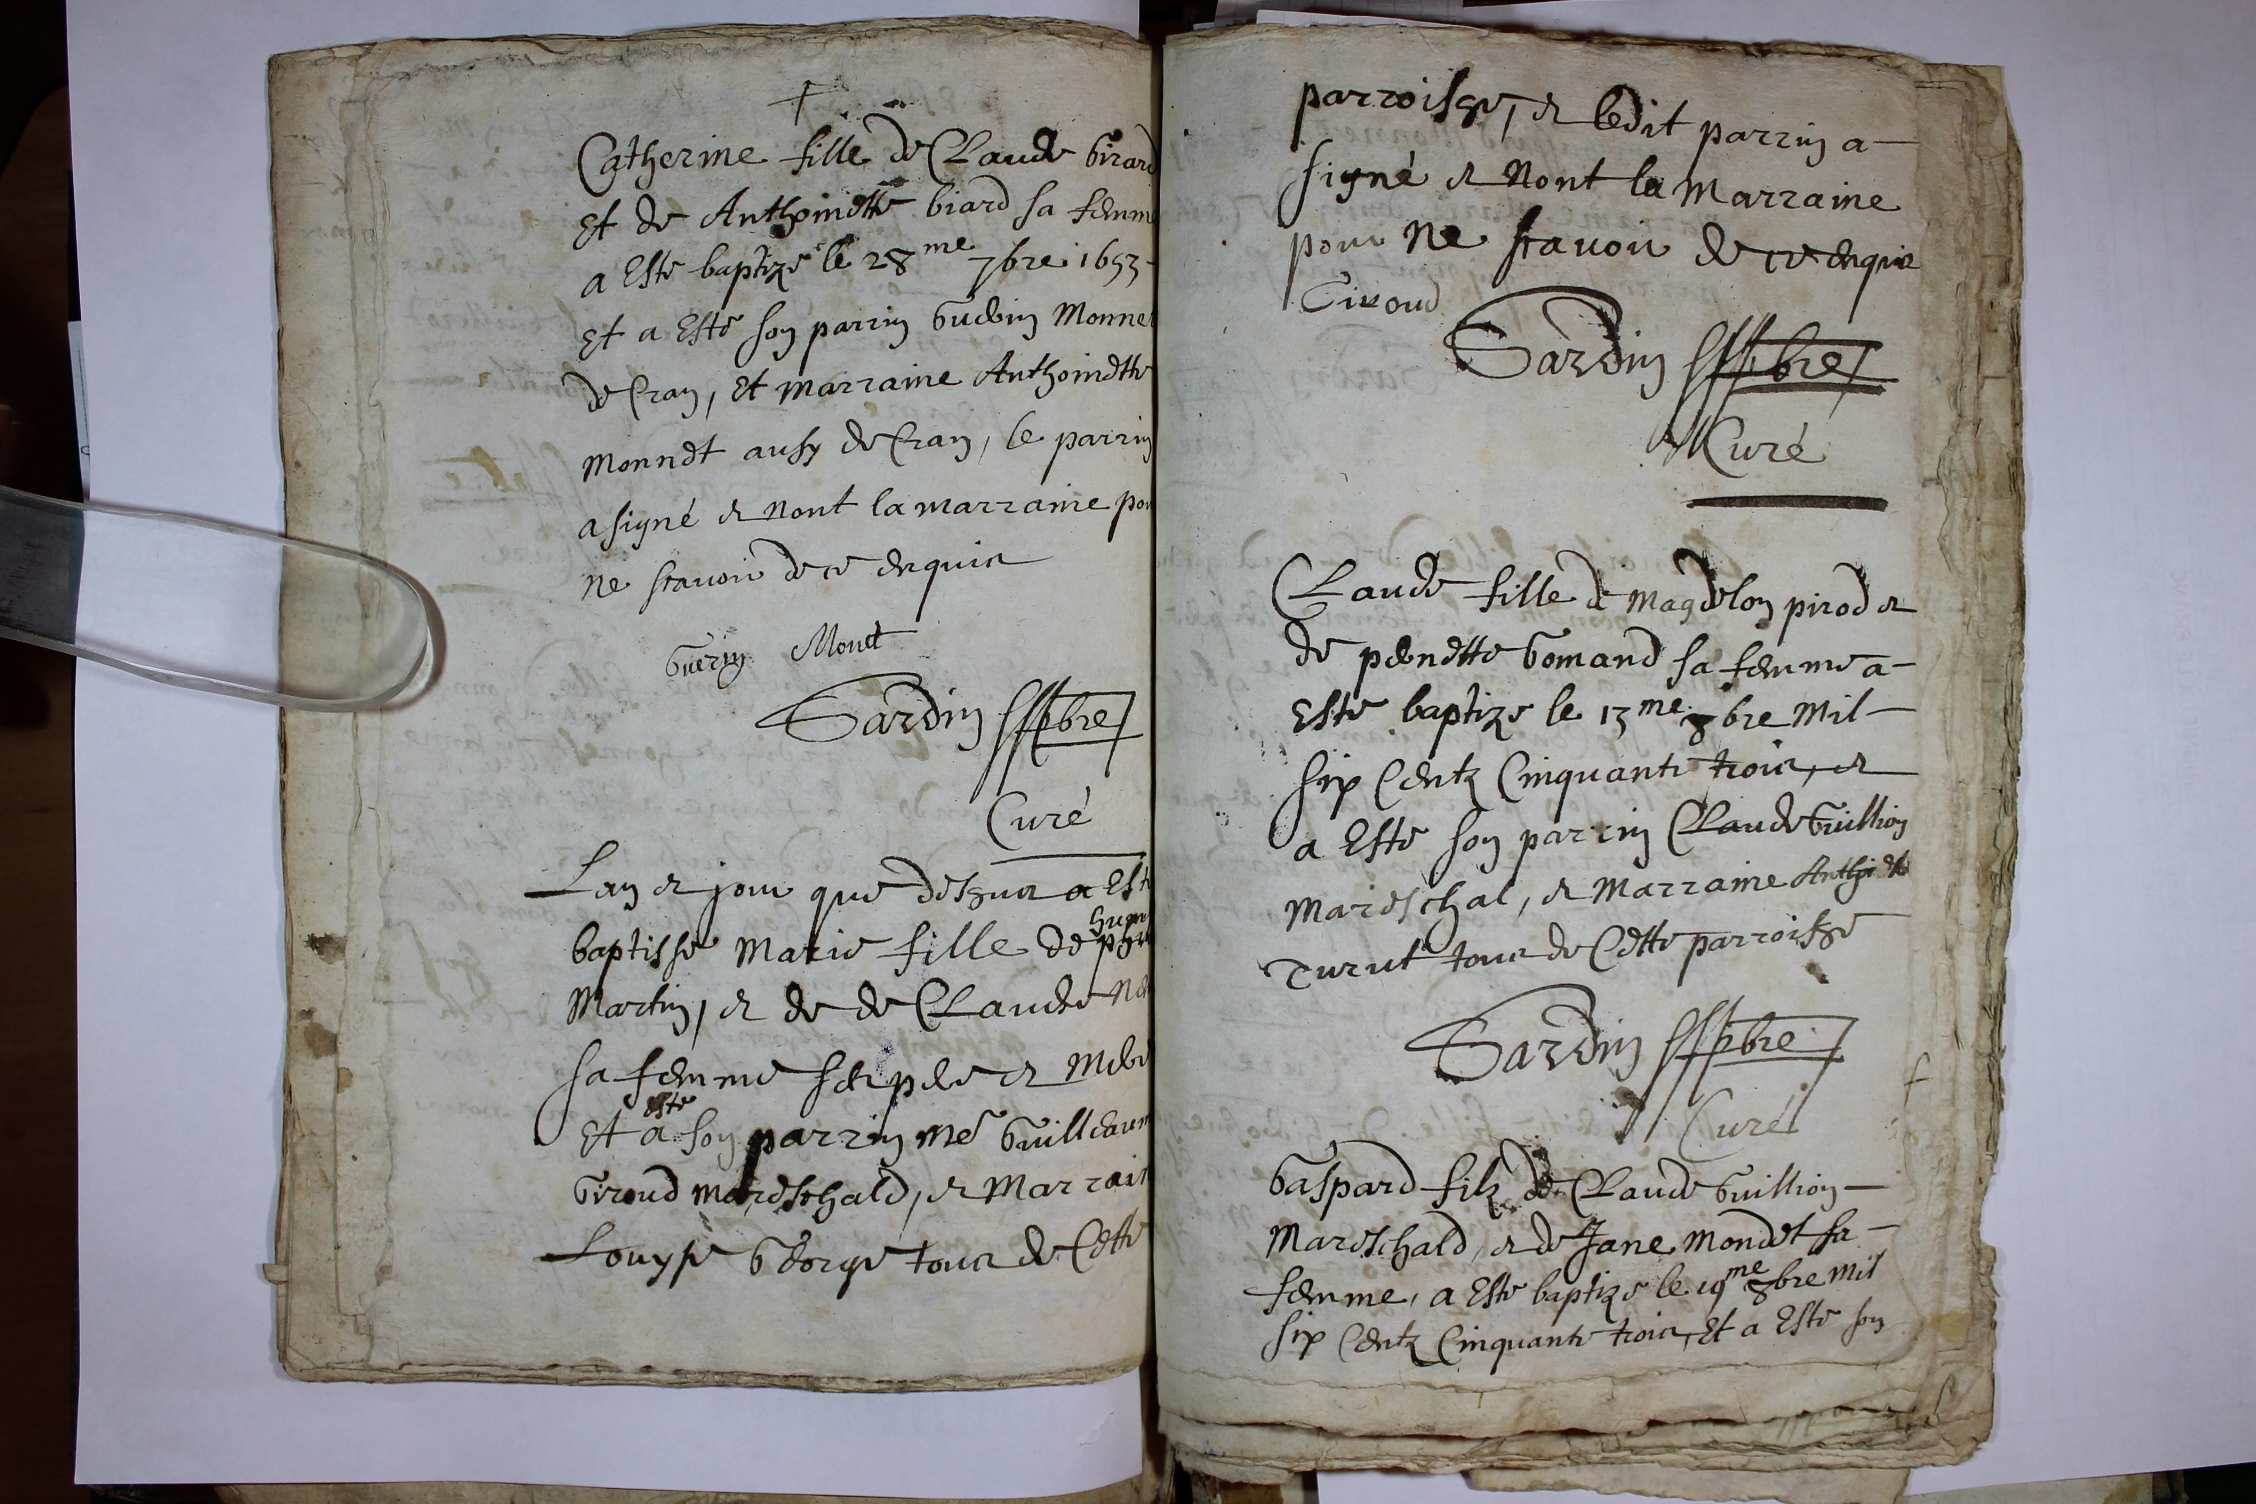 Catherine fille de Claude Girard
et de Anthoinette biard sa femm
a Esté baptizé le 28me 7bre 1653
Et a Esté son parrin Guerin Monnet
de Cran, et marraine Anthoinette
Monnet aussy de Cran, le parrin
a signé et nont la marraine pour
ne scavoir de ce enquis
Guerin Monet
Sardin pbre
Curé
Lan et jour que dessus a Esté
baptissé Marie fille de
Martin, et de de Claude
sa femme
Et a esté son parrin Me Guilleaum
Giroud mareschald, et Marrain
Louyse George tous de Cette
parroisse, et ledit parrin a
signé et nont la Marraine
pour ne scavoir de ce enquis
Giroud
Sardin pbre
Curé
Claude fille de Magdelon pirod et
de pernette Gomand sa femme a
Esté baptizé le 13me 8bre Mil
six Centz Cinquante trois, et
a Esté son parrin Claude Guillion
Mareschal, et Marraine
Turut tous de Cette parroisse
Sardin pbre
Curé
Gaspard filz de Claude Guillion
Mareschald, et de Jane Mondet sa
femme, a Esté baptizé le 19me 8bre Mil
six Centz Cinquante trois, Et a Esté son